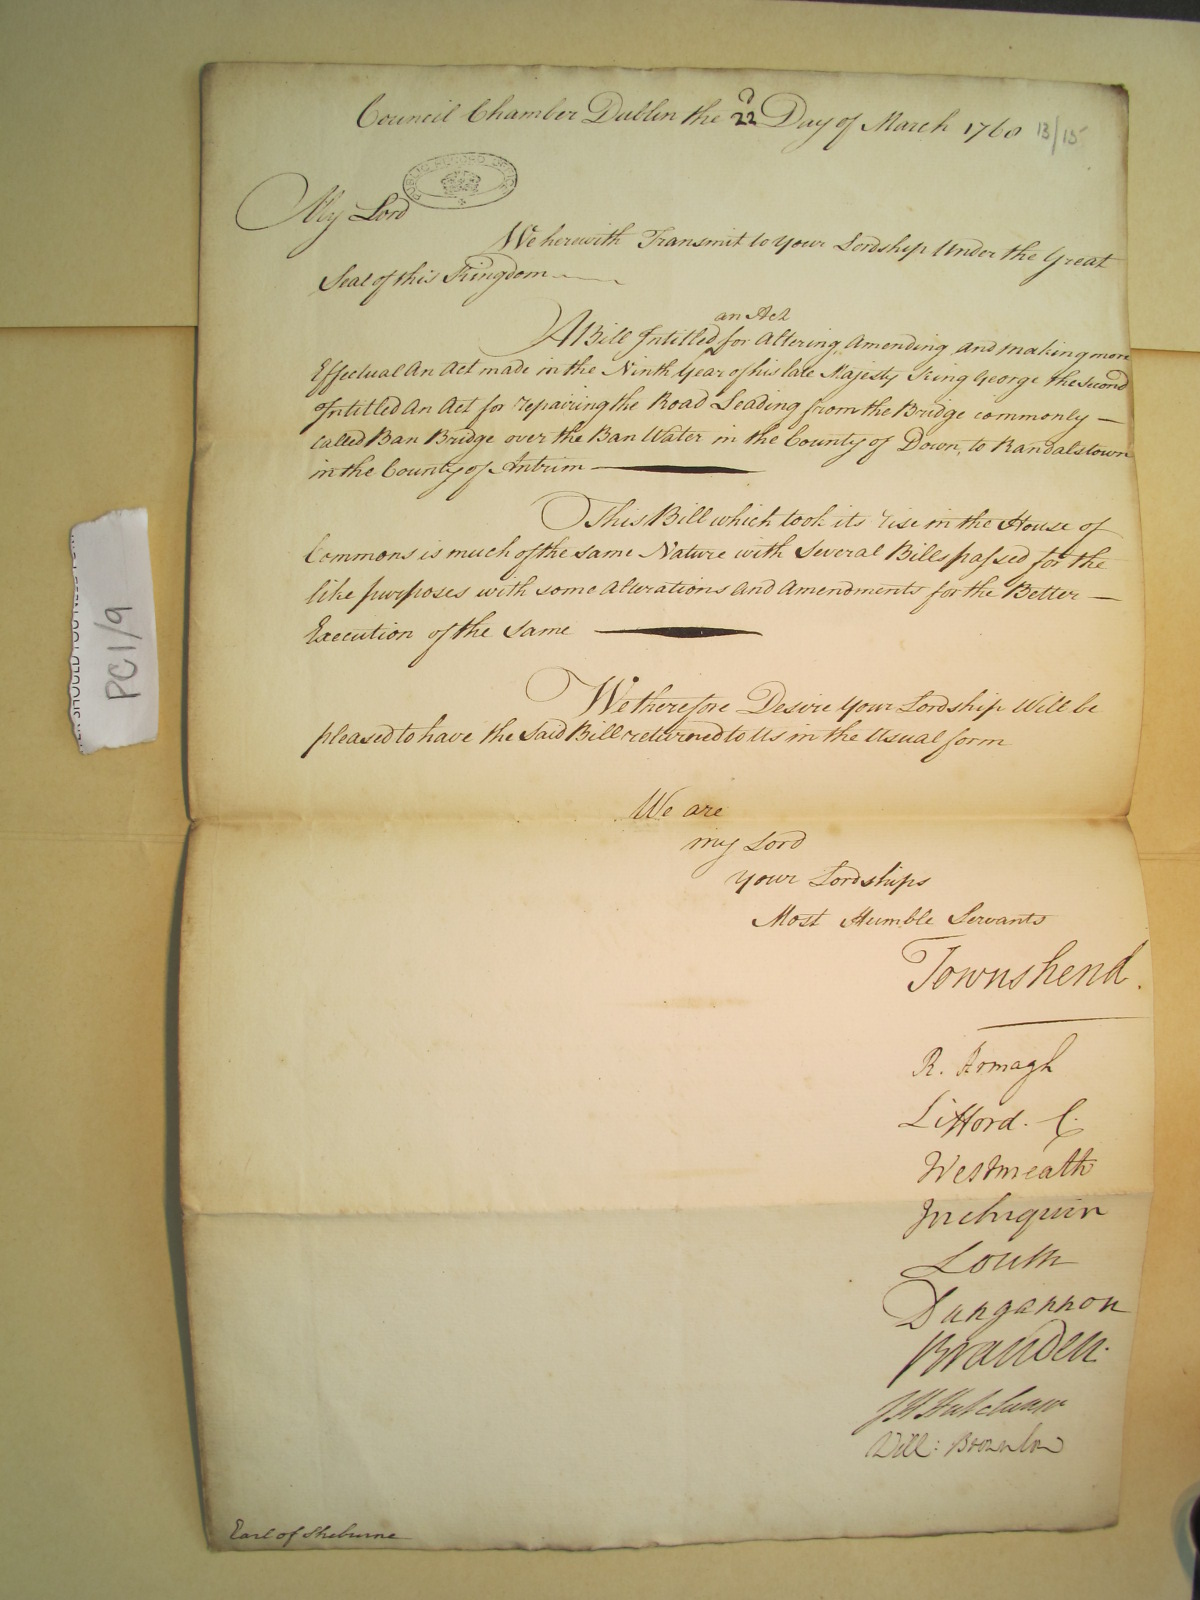 Council Chamber Dublin the 22d Day of March 1768 13/15
PUBLIC RECORD OFFICE
My Lord
We herewith Transmit to your Lordship Under the Great
Seal of this Kingdom
an Act
A Bill Intitled for Altering Amending and making more
Effectual An Act made in the Ninth Year of his late Majesty King George the Second
Intitled An Act for repairing the Road Leading from the Bridge commonly —
called Ban Bridge over the Ban Water in the County of Down, to Randalstown
in the County of Antrim —
This Bill which took its rise in the House of
Commons is much of the same Nature with Several Bills passed for the
like purposes with some Alterations and Amendments for the Better —
Execution of the Same —
We therefore Desire your Lordship Will be
pleased to have the Said Bill returned to Us in the Usual form
We are
my Lord
your Lordships
Most Humble Servants
Townshend.
R. Armagh
Lifford. C.
Westmeath
Inchiquin
Louth
Dungannon
Branden.
J H Hutchinson
Will: Brownlow
Earl of Shelburne
PC1/9